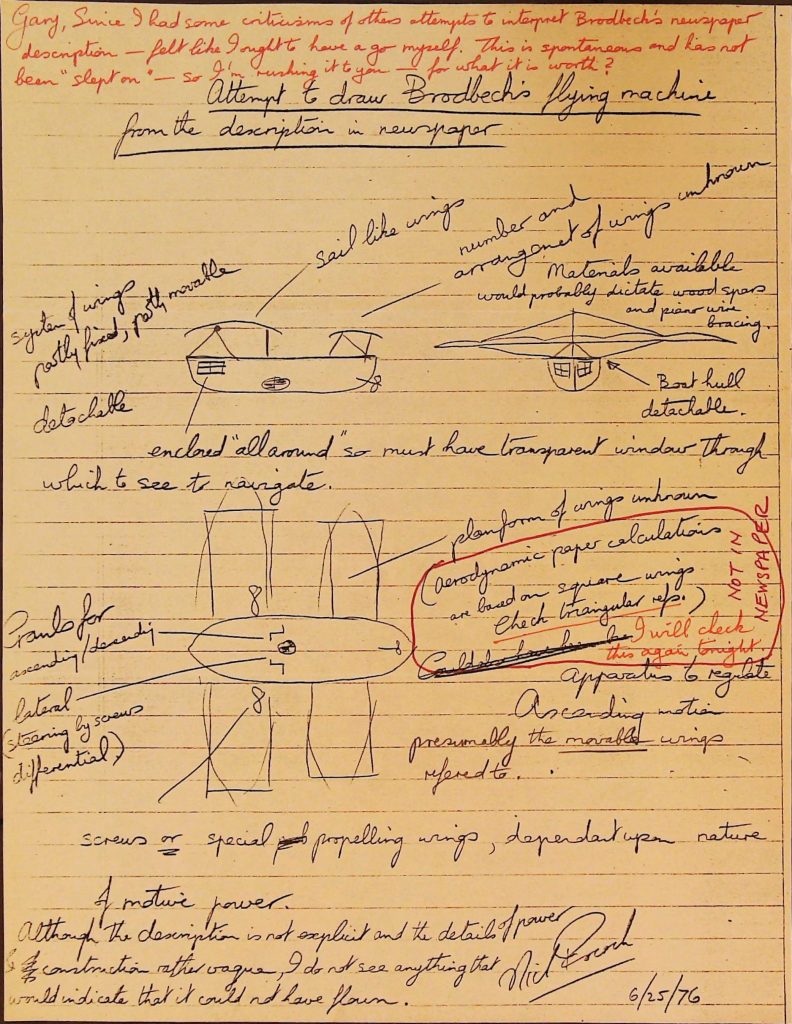 Gary, Since I had some criticisms of others attempts to interpret Brodbeck's newspaper
description — felt like I ought to have a go myself. This is spontaneous and has not
been "slept on" — so I'm rushing it to you — for what it is worth?
Attempt to draw Brodbeck's flying machine
from the description in newspaper
sail like wings
number and
arrangemet of wings unknown
system of wings
partly fixed, partly movable
Materials available
would probably dictate wood spars
and piano wire
bracing.
detachable
Boat hull
detachable.
enclosed "all around" so must have transparent window through
which to see to navigate.
planform of wings unknown
(aerodynamic paper calculations
are based on square wings
Check triangular refs.)
NOT IN
NEWSPAPER
I will check
this again tonight
Cranks for
ascending/descending
lateral
(steering by screws
differential.)
apparatus to regulate
Ascending motion
presumably the movable wings
refered to.
screws or special propelling wings, dependant upon nature
of motive power.
Although the description is not explicit and the details of power
& construction rather vague, I do not see anything that
would indicate that it could not have flown.
Nick Pocock
6/25/76